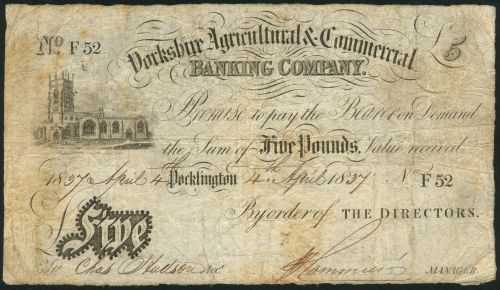 No F 52
Yorkshire Agricultural & Commercial £5
BANKING COMPANY.
Promise to pay the Bearer on Demand
the Sum of Five Pounds, Value received
1837 April 4th Pocklington 4th April 1837 No F 52
By order of THE DIRECTORS.
£Five
Chas Hudson MANAGER